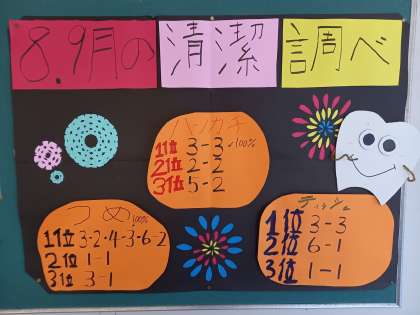 8.9月の清潔調べ
ハンカチ
1位 3-3 100%
2位 2-2
3位 5-2
つめ 100%
1位 3-2・4-3・6-2
2位 1-1
3位 3-1
ティッシュ
1位 3-3
2位 6-1
3位 1-1